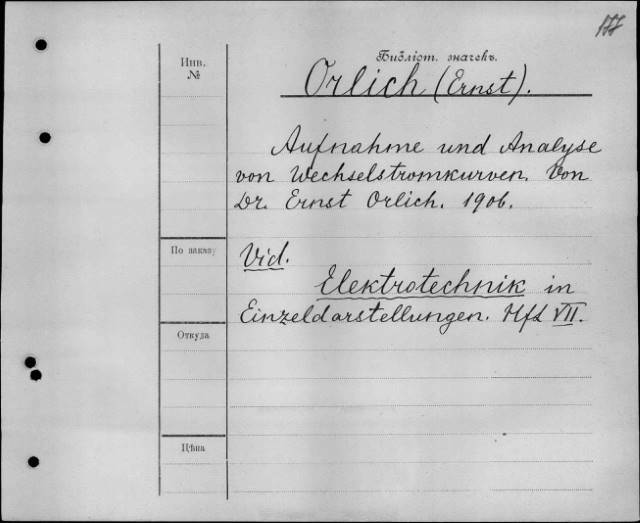 177
Библіот. значекъ.
Инв.
№
Orlich (Ernst).
Aufnahme und Analyse
von Wechselstromkurven. Von
Dr. Ernst Orlich. 1906.
По заказу
Vid.
Elektrotechnik in
Einzeldarstellungen. Hft VII.
Откуда
Цѣна